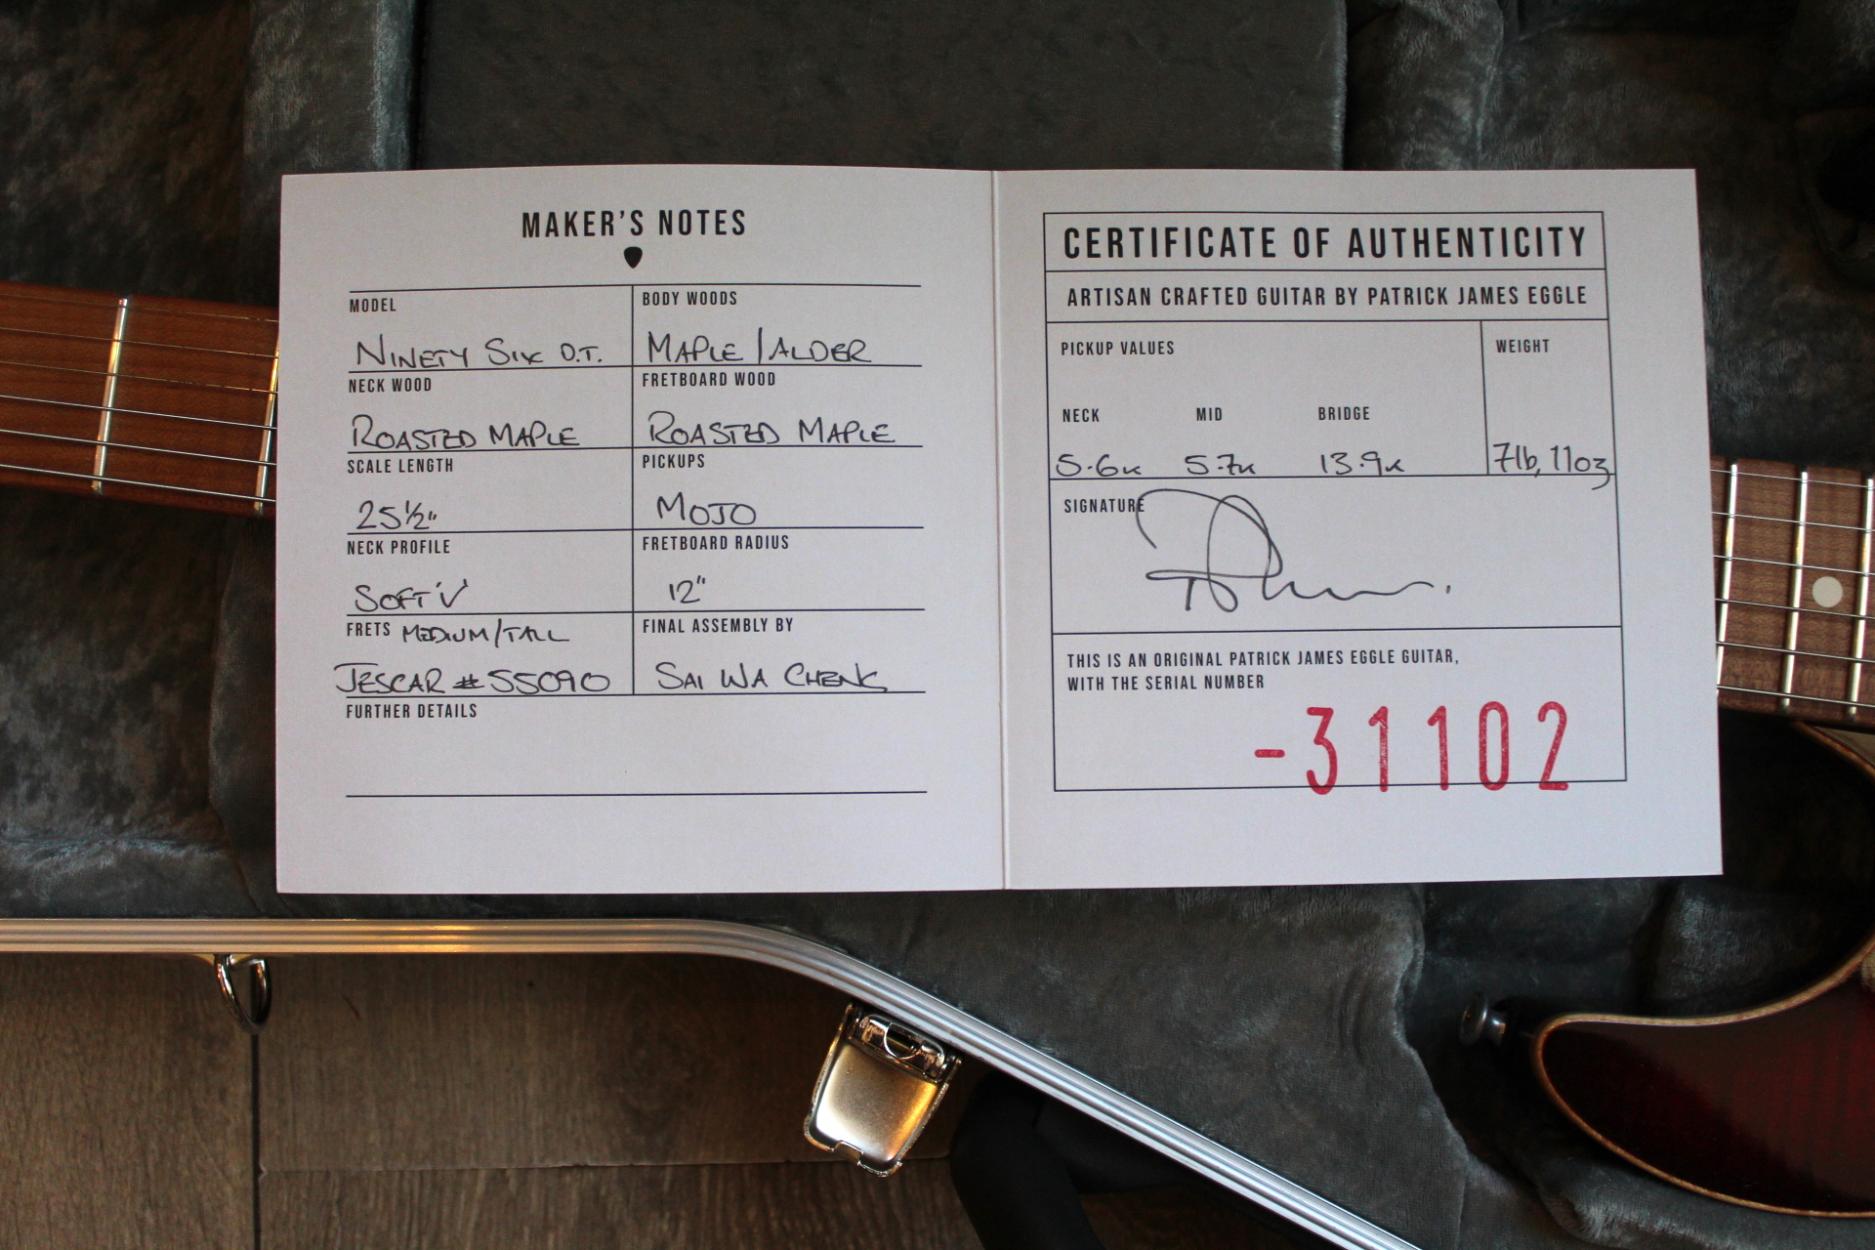 MAKER'S NOTES
MODEL
NINETY SIX D.T.
BODY WOODS
MAPLE / ALDER
NECK WOOD
ROASTED MAPLE
FRETBOARD WOOD
ROASTED MAPLE
SCALE LENGTH
25½"
PICKUPS
MOJO
NECK PROFILE
SOFT 'V'
FRETBOARD RADIUS
12"
FRETS MEDIUM/TALL
JESCAR #55090
FINAL ASSEMBLY BY
SAI WA CHENG
FURTHER DETAILS
CERTIFICATE OF AUTHENTICITY
ARTISAN CRAFTED GUITAR BY PATRICK JAMES EGGLE
PICKUP VALUES
WEIGHT
NECK MID BRIDGE
5.6K 5.7K 13.9K
7lb, 11oz
SIGNATURE
THIS IS AN ORIGINAL PATRICK JAMES EGGLE GUITAR,
WITH THE SERIAL NUMBER
-31102